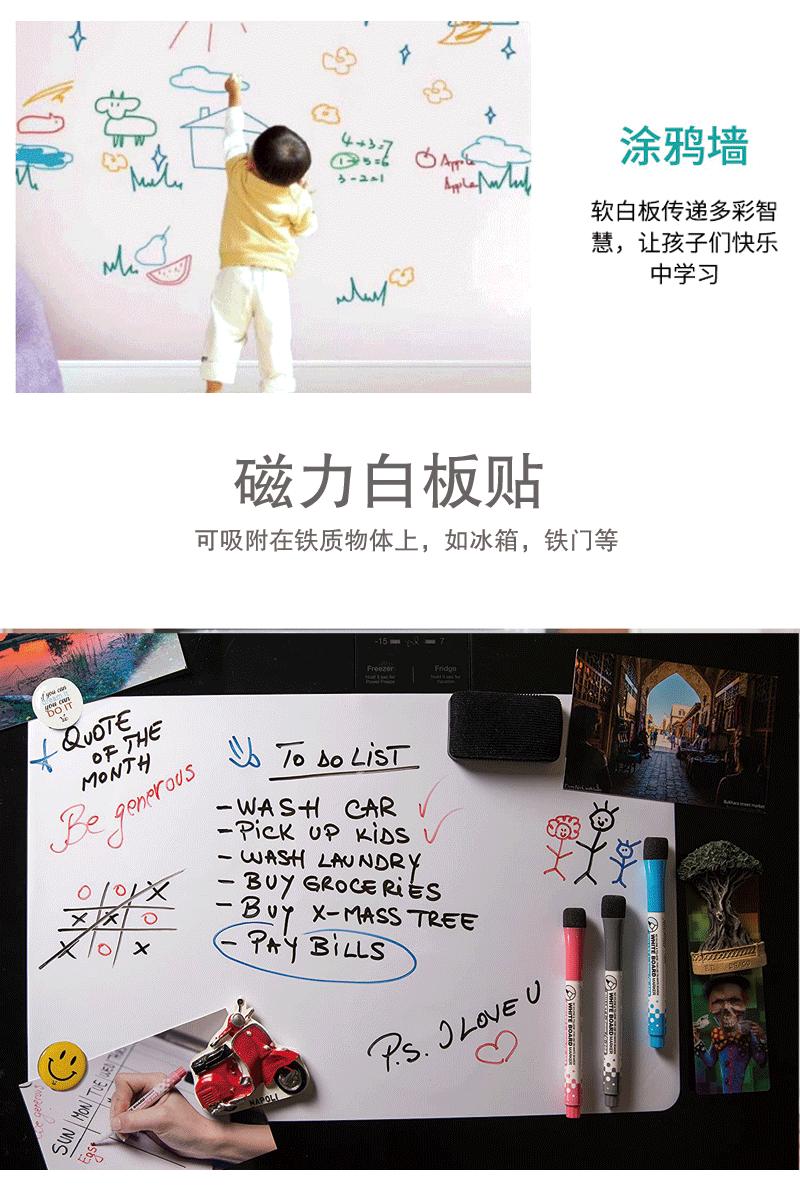 4+3=7
1+5=6
3-2=1
Apple
Apple
涂鸦墙
软白板传递多彩智
慧，让孩子们快乐
中学习
磁力白板贴
可吸附在铁质物体上，如冰箱，铁门等
-15
7
Freezer
Fridge
if you can
you can
DO IT
QUOTE
OF THE
MONTH
Be generous
TO DO LIST
-WASH CAR
-PICK UP KIDS
-WASH LAUNDRY
-BUY GROCERIES
-BUY X-MASS TREE
-PAY BILLS
O O X
X X O
X O X
P.S. I LOVE U
Bukhara street market
WHITE BOARD
WHITE BOARD
WHITE BOARD
NAPOLI
SUN MON TUE WED
Egs